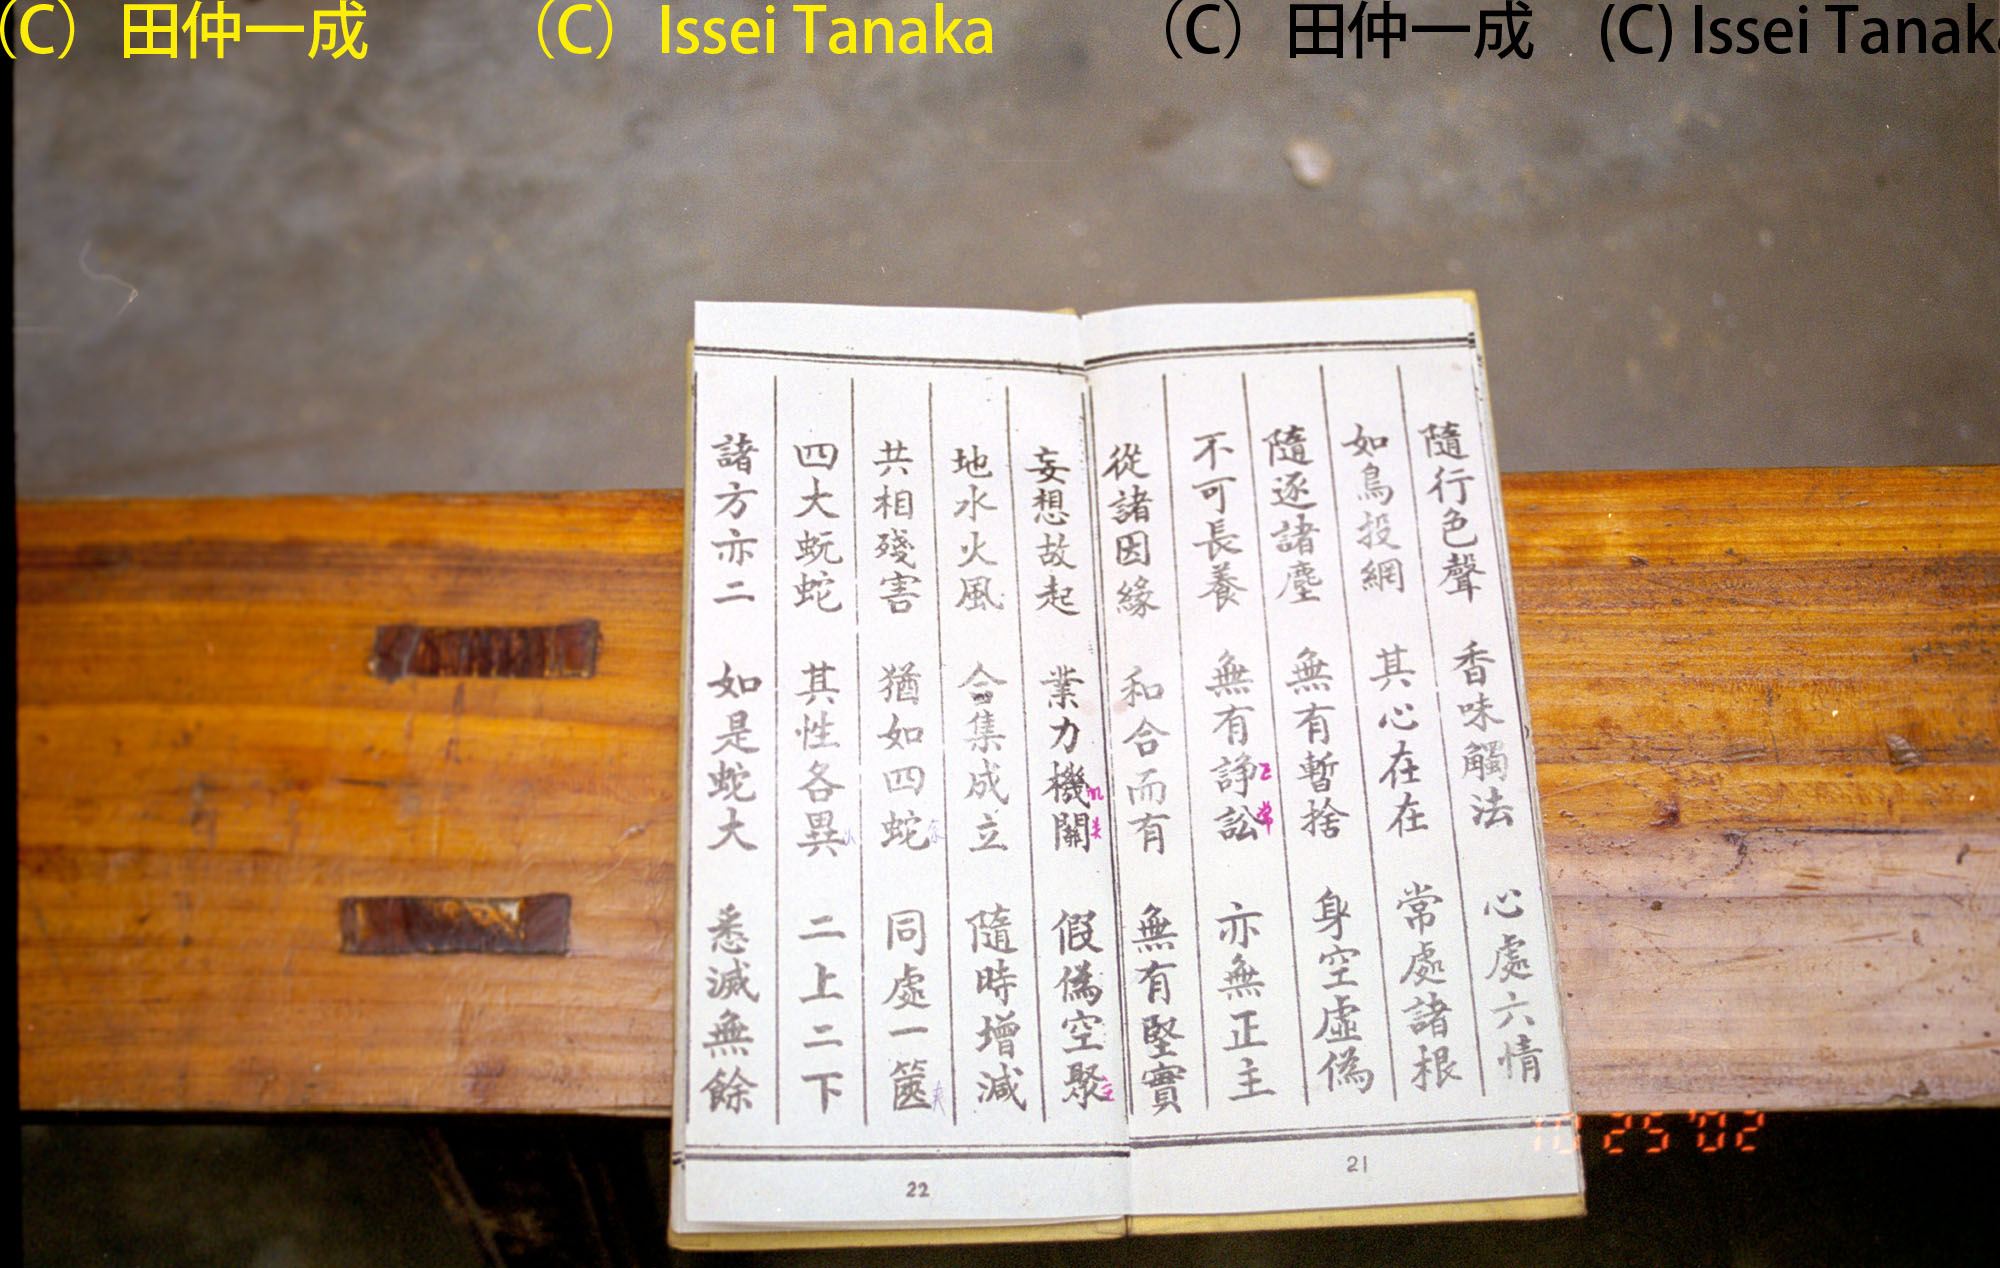 (C) 田仲一成 (C) Issei Tanaka (C) 田仲一成 (C) Issei Tanaka
隨行色聲 香味觸法 心處六情
如鳥投網 其心在在 常處諸根
隨逐諸塵 無有暫捨 身空虛偽
不可長養 無有諍訟 亦無正主
從諸因緣 和合而有 無有堅實
妄想故起 業力機關 假偽空聚
地水火風 合集成立 隨時增減
共相殘害 猶如四蛇 同處一篋
四大蚖蛇 其性各異 二上二下
諸方亦二 如是蛇大 悉滅無餘
21
22
10 25 '02